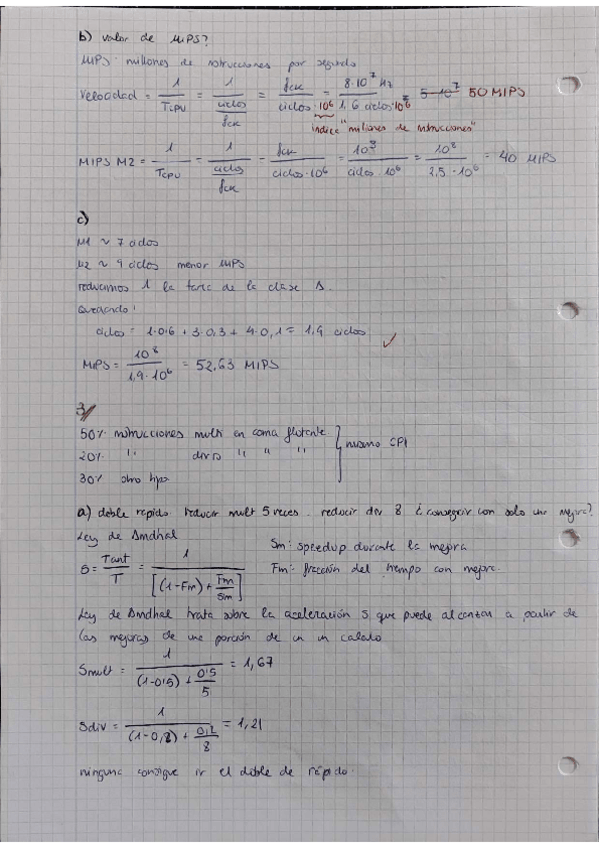 b) valor de MIPS?
MIPS: millones de instrucciones por segundo
Velocidad = 1 / TCPU = 1 / (ciclos / fCK) = fCK / (ciclos · 10^6) = 8·10^7 Hz / (1,6 ciclos·10^6) = 50 MIPS
índice "millones de instrucciones"
MIPS M2 = 1 / TCPU = 1 / (ciclos / fCK) = fCK / (ciclos·10^6) = 10^8 / (ciclos 10^6) = 10^8 / (2,5·10^6) = 40 MIPS
c)
M1 ~ 7 ciclos
M2 ~ 9 ciclos menor MIPS
reducimos 1 la de la clase A.
Quedando:
ciclos = 1·0,6 + 3·0,3 + 4·0,1 = 1,9 ciclos
MIPS = 10^8 / (1,9·10^6) = 52,63 MIPS
3/
50% instrucciones mult en coma flotante
20% " divis " " " } mismo CPI
30% otro tipo
a) doble rapido reducir mult 5 veces. reducir div 8 ¿conseguir con solo una mejora?
Ley de Amdhal
S = Tant / T = 1 / [(1-Fm) + Fm/Sm]
Sm: speedup durante la mejora
Fm: fracción del tiempo con mejora.
Ley de Amdhal trata sobre la aceleración S que puede alcanzar a partir de
las mejoras de una porción de un un calculo
Smult = 1 / ((1-0'5) + 0'5/5) = 1,67
Sdiv = 1 / ((1-0,2) + 0,2/8) = 1,21
ninguna consigue ir el doble de rápido.